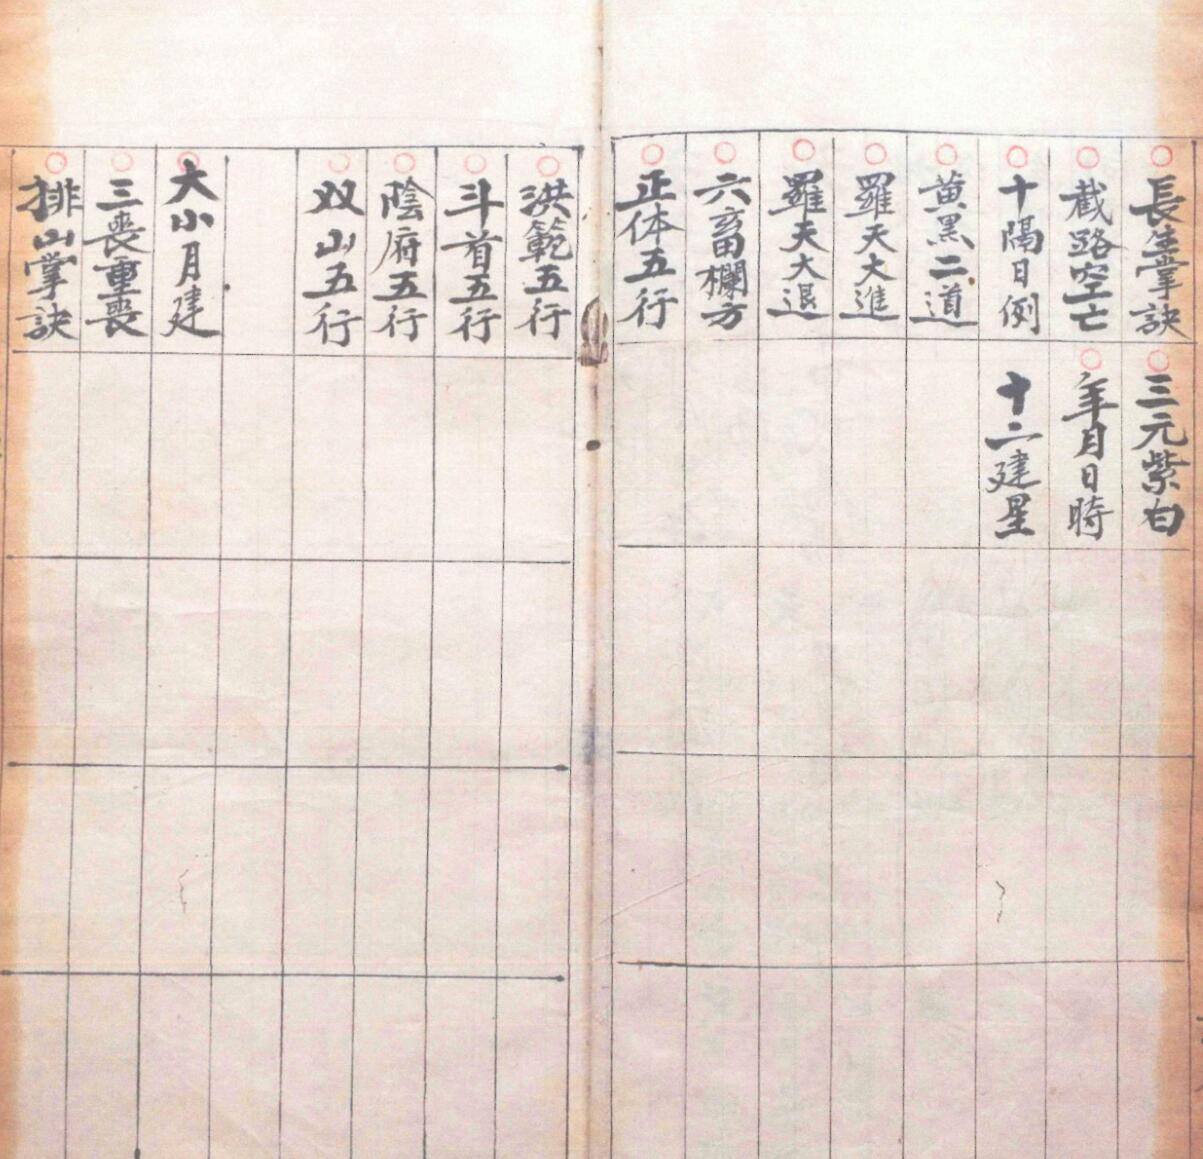 長生掌訣
截路空亡
十隔日例
黄黑二道
羅天大進
羅天大退
六畜欄方
正体五行
三元紫白
年月日時
十二建星
洪範五行
斗首五行
陰府五行
双山五行
大小月建
三喪重喪
排山掌訣